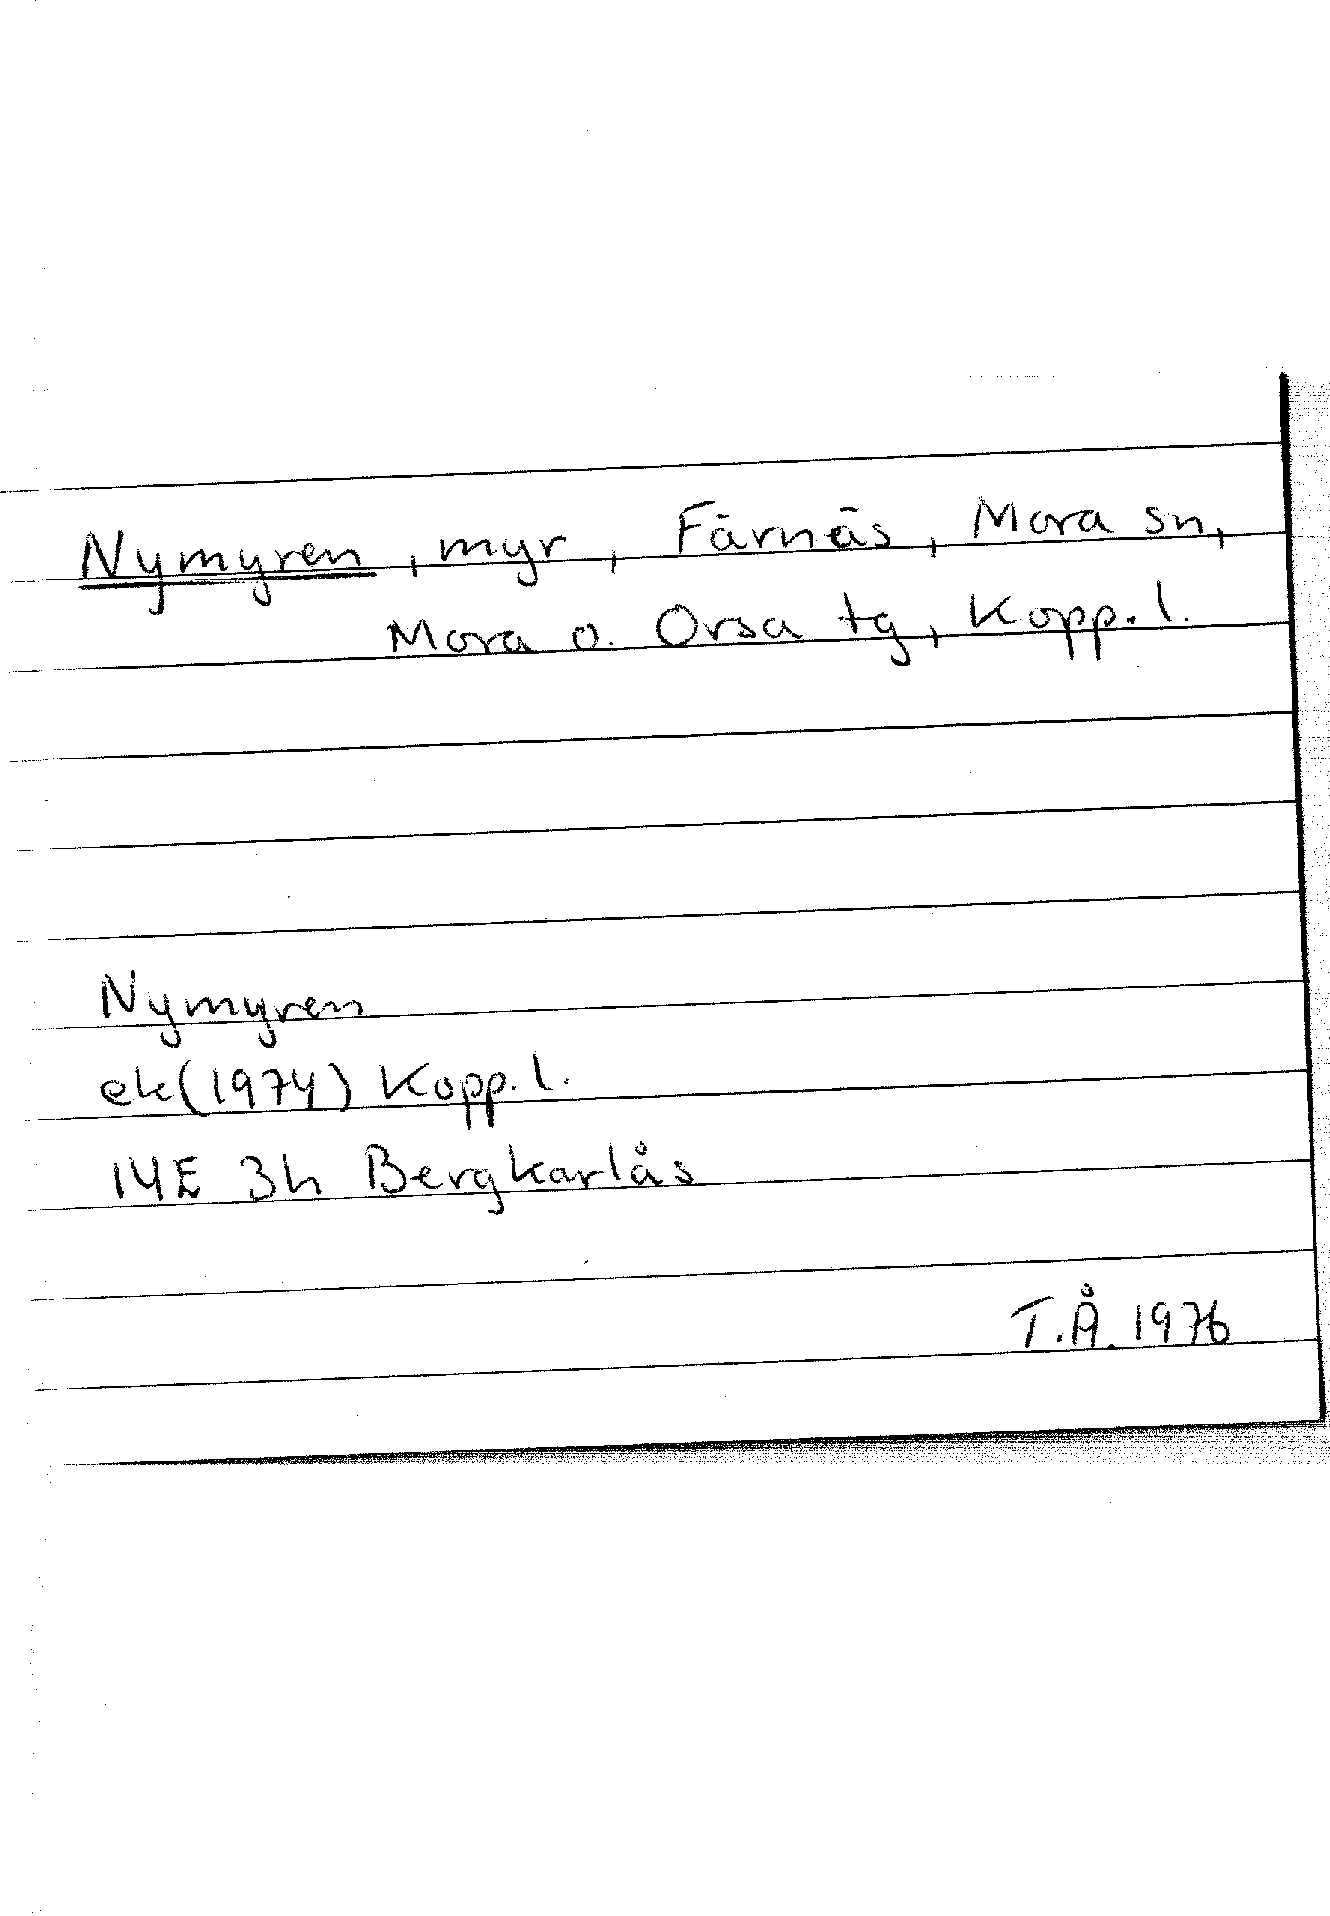 Nymyren, myr, Färnäs, Mora sn,
Mora o. Orsa tg, Kopp. l.
Nymyren
ek(1974) Kopp. l.
14E 3h Bergkarlås
T.Å. 1976